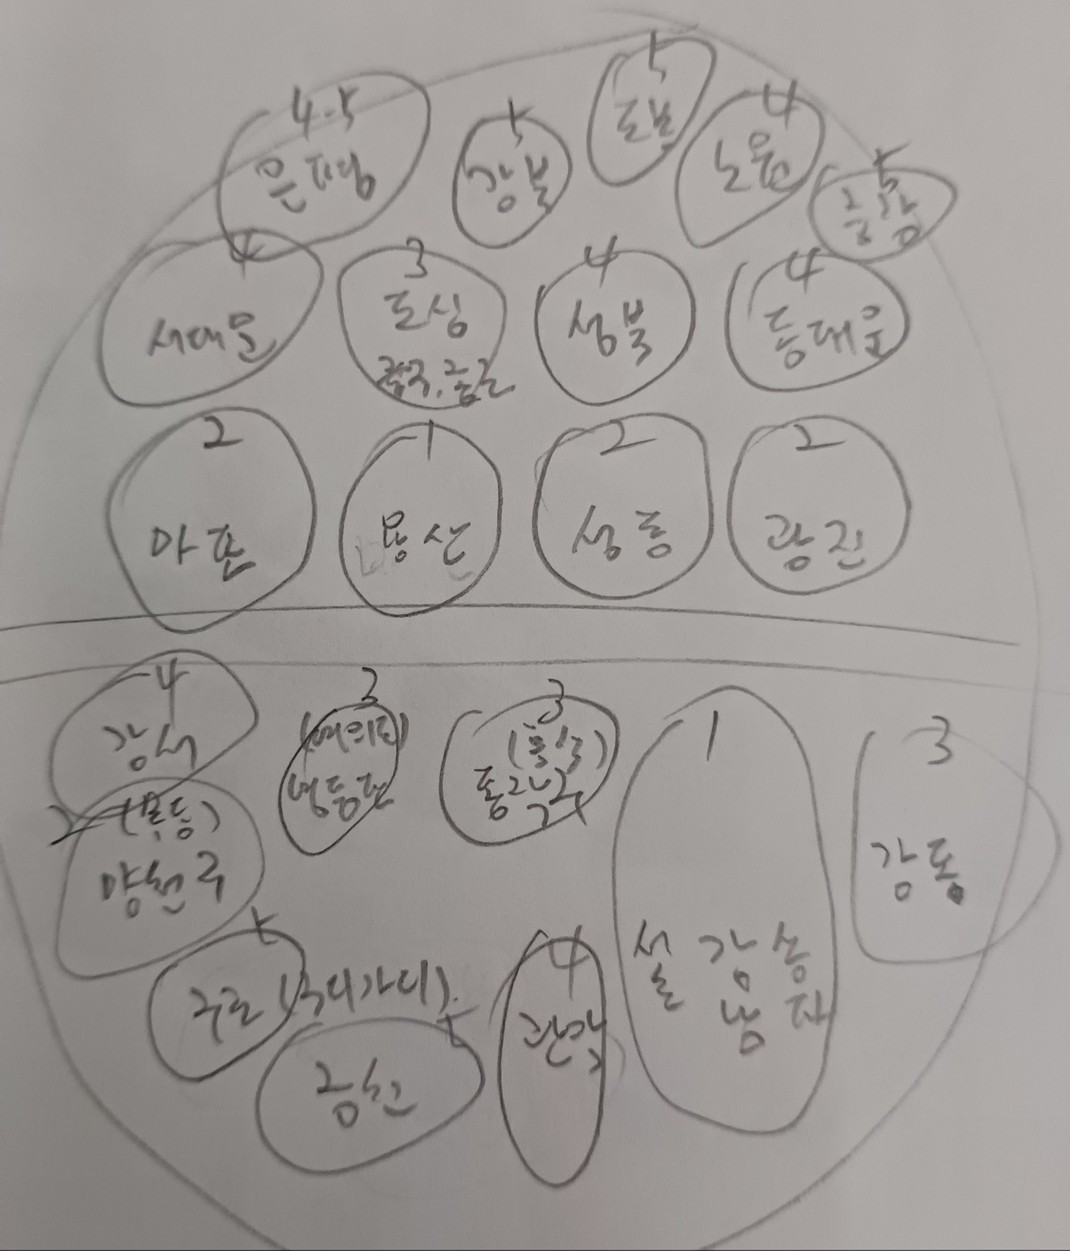 4.5
은평
5
강북
5
도봉
4
노원
5
중랑
4
서대문
3
도심
종로
4
성북
4
동대문
2
마포
1
용산
2
성동
2
광진
4
강서
2 (목동)
양천구
3
(여의도)
영등포
3
동작구
1
서 강 송
초 남 파
3
강동
5
구로 (구디가디)
5
금천
4
관악